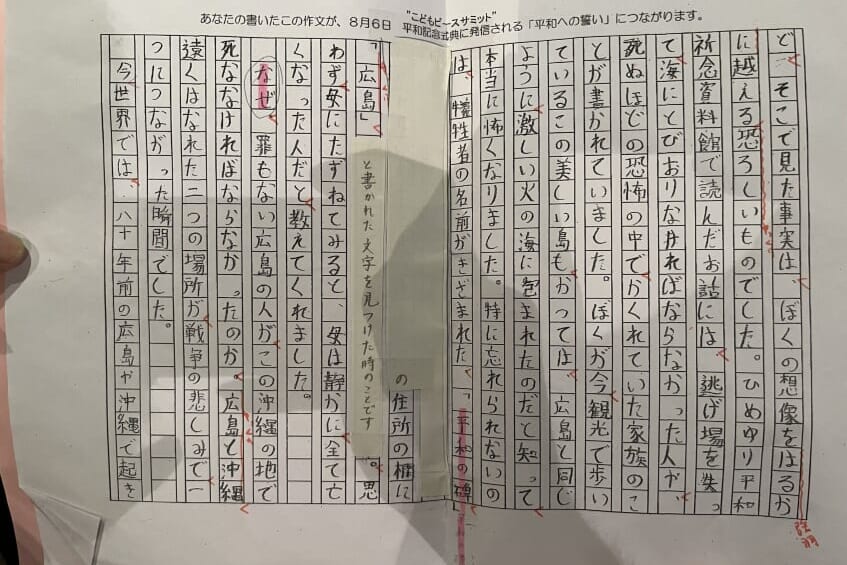 "こどもピースサミット"
あなたの書いたこの作文が、8月6日 平和記念式典に発信される「平和への誓い」につながります。
ど、そこで見た事実は、ぼくの想像をはるか
に越える恐ろしいものでした。ひめゆり平和
祈念資料館で読んだお話には、逃げ場を失っ
て海にとびおりなければならなかった人が、
死ぬほどの恐怖の中でかくれていた家族のこ
とが書かれていました。ぼくが今観光で歩い
ているこの美しい島もかつては、広島と同じ
ように激しい火の海に包まれたのだと知って
本当に怖くなりました。特に忘れられないの
は、犠牲者の名前がきざまれた、「平和の碑
」
の住所の欄に
「広島」と書かれた文字を見つけた時のことです。思
わず母にたずねてみると、母は静かに全て亡
くなった人だと教えてくれました。
なぜ罪もない広島の人がこの沖縄の地で
死ななければならなかったのか。広島と沖縄
遠くはなれた二つの場所が戦争の悲しみで一
つにつながった瞬間でした。
今世界では、八十年前の広島や沖縄で起き